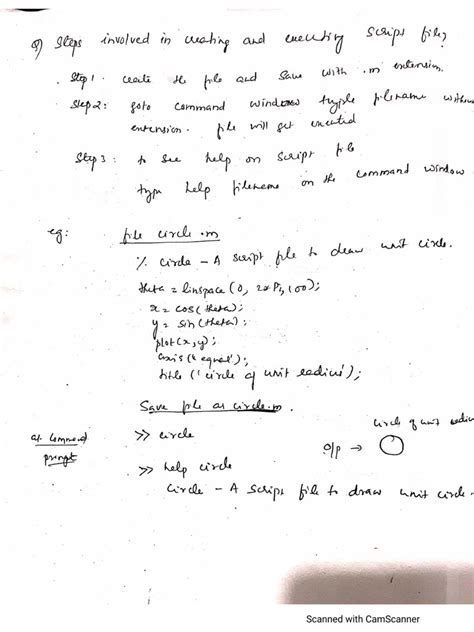 Q) Steps involved in creating and executing Script file?
Step 1 . create the file and save with .m extension.
Step 2 : goto command window type filename withou
extension. file will get executed
Step 3 : to see help on script file
type help filename on the command window
eg: file circle.m
% Circle - A script file to draw unit circle.
theta = linspace (0, 2*Pi, 100);
x = cos(theta);
y = sin(theta);
plot(x,y);
axis('equal');
title ('circle of unit radius');
Save file as circle.m.
at command prompt
>> circle
o/p →
circle of unit radiu
>> help circle
Circle - A script file to draw unit circle.
Scanned with CamScanner